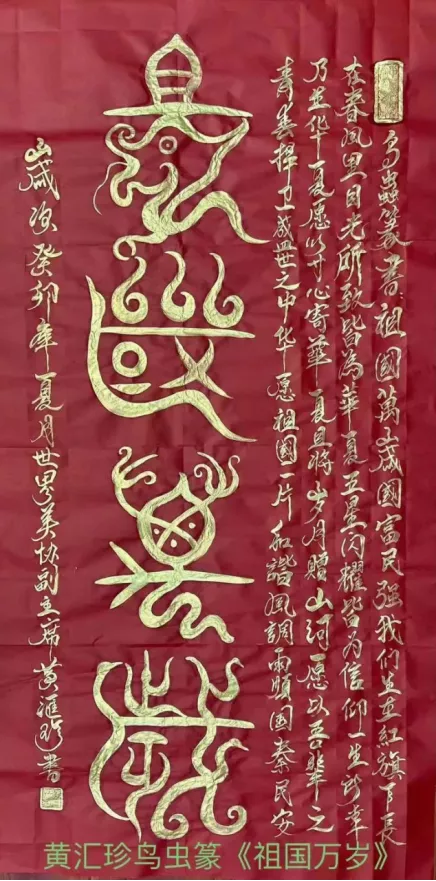 鸟蟲篆書祖國萬歲國富民强我们生在紅旗下長
在春风里目光所致皆為華夏五星闪耀皆为信仰一生所幸
乃生华夏愿以寸心寄華夏且将岁月赠山河愿以吾辈之
青春捍卫盛世之中华愿祖國一片和諧風調雨順国泰民安
祖國萬歲
歲次癸卯年夏月世界美协副主席黄滙珍書
黄汇珍鸟虫篆《祖国万岁》